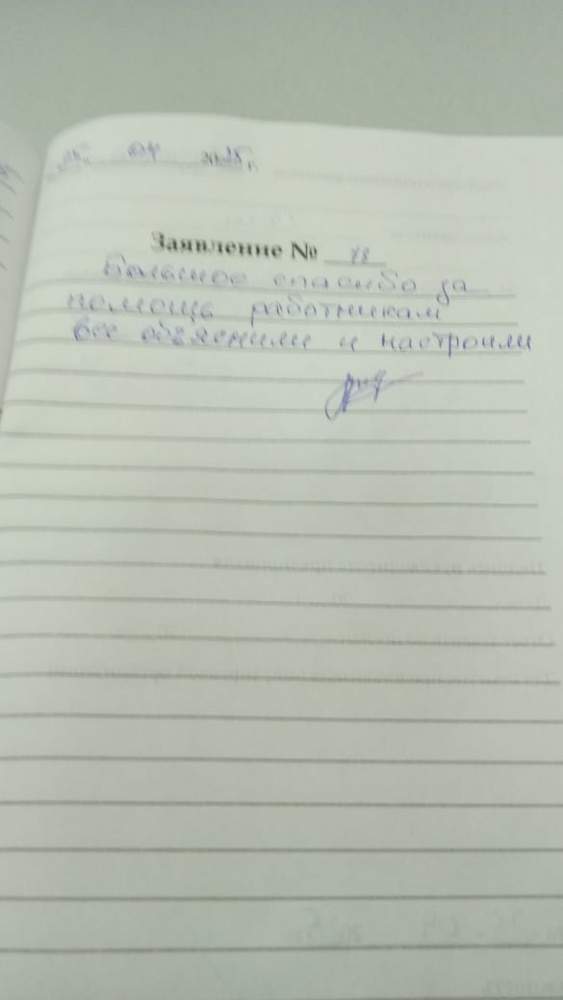 Заявление №
Большое спасибо за
помощь работникам
все объяснили и настроили